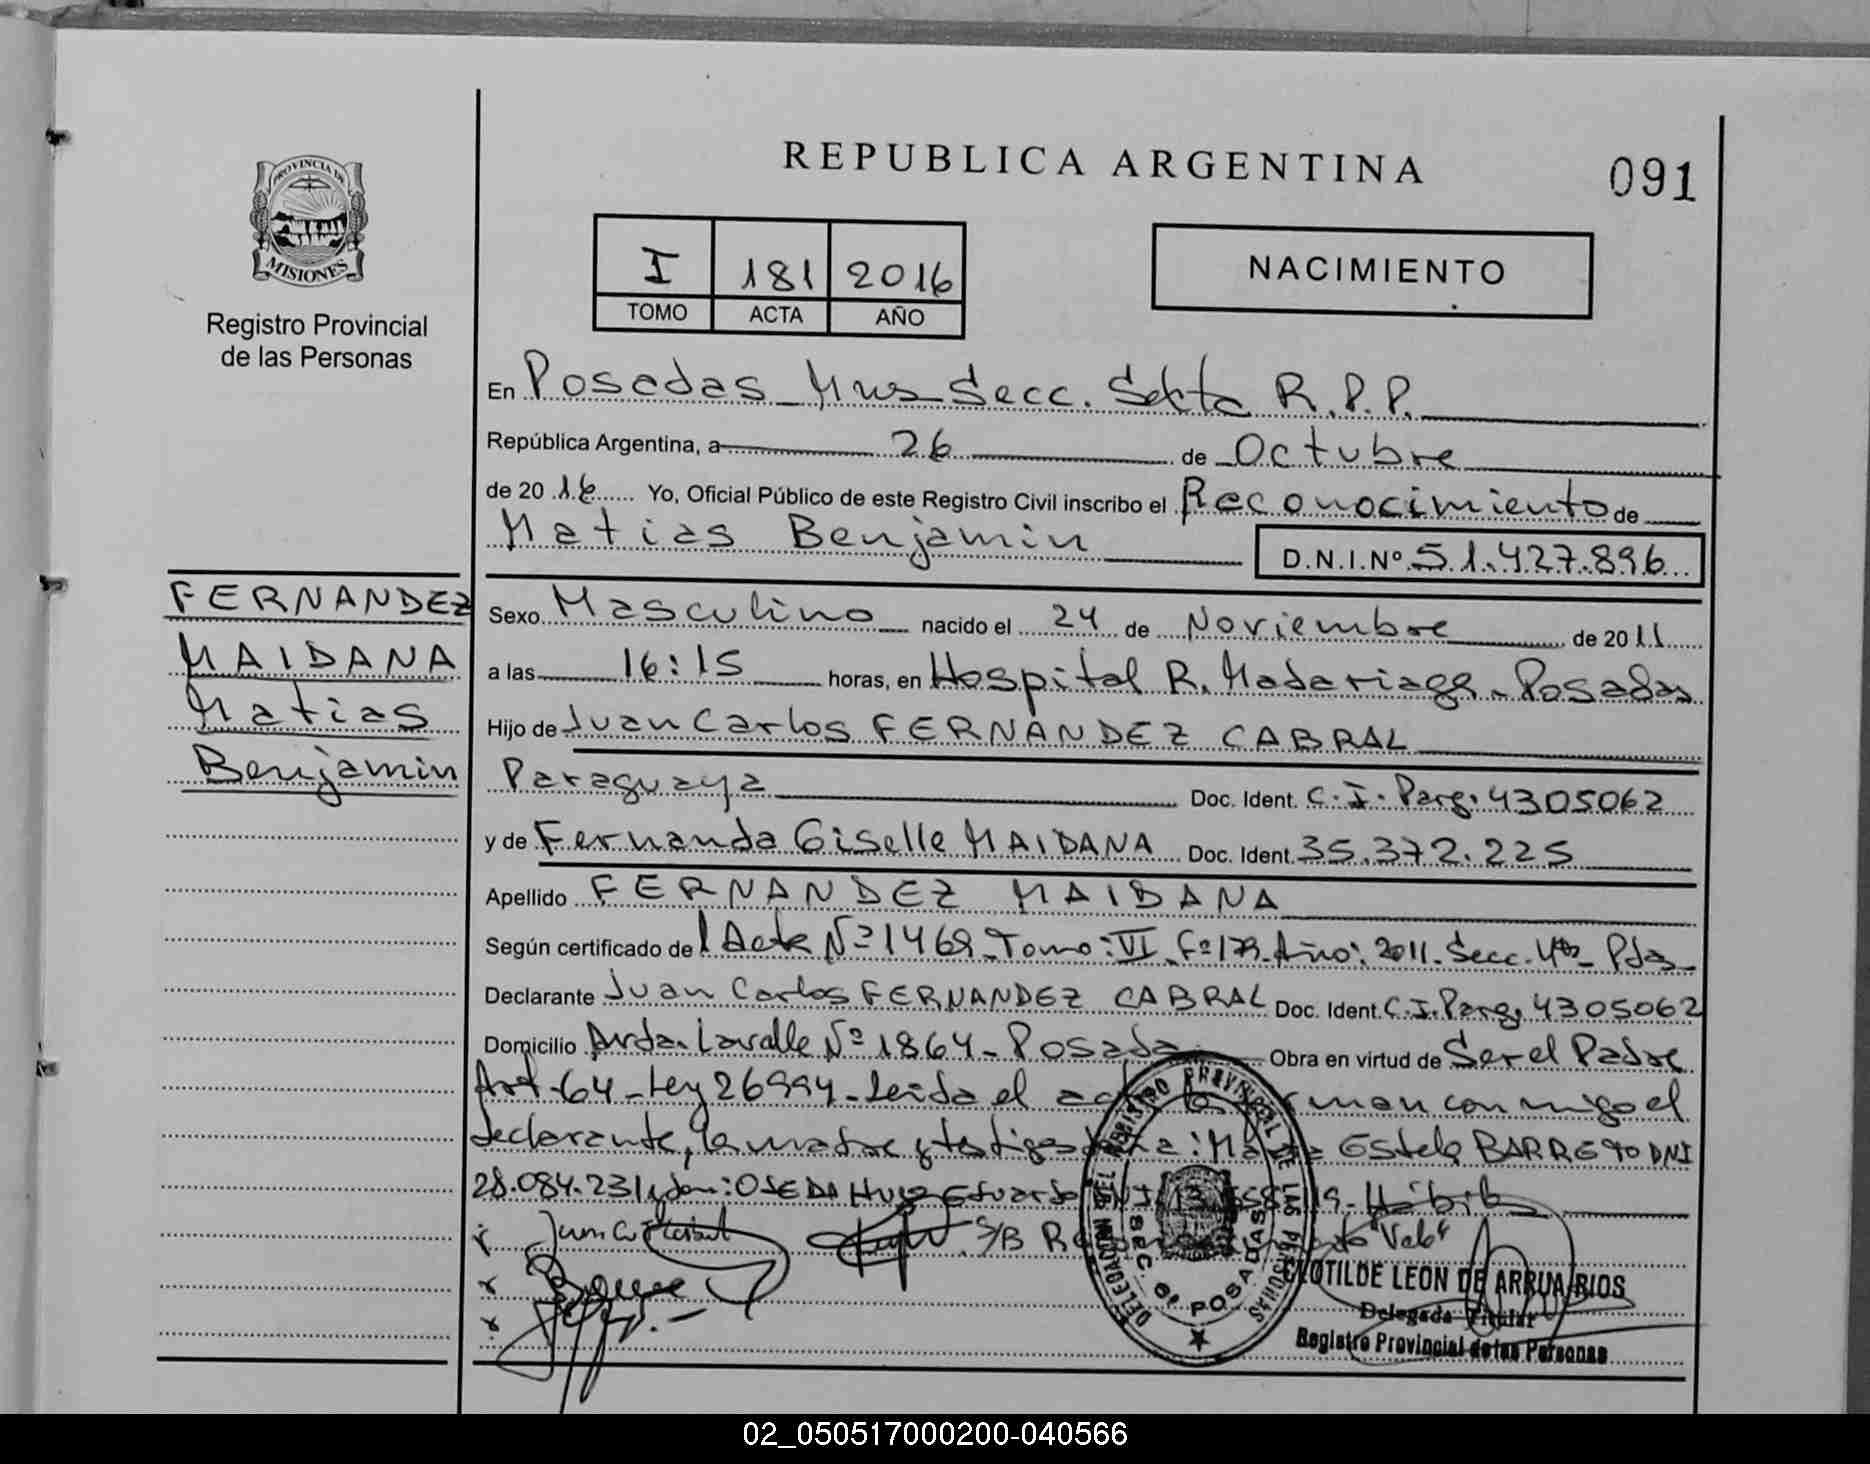 REPUBLICA ARGENTINA
091
PROVINCIA DE
MISIONES
Registro Provincial
de las Personas
I 181 2016
TOMO ACTA AÑO
NACIMIENTO
En Posadas Mnes Secc. Sexta R.P.P.
República Argentina, a 26 de Octubre
de 2016 Yo, Oficial Público de este Registro Civil inscribo el Reconocimiento de
Matias Benjamin D.N.I.Nº 51.427.896
FERNANDEZ
MAIDANA
Matias
Benjamin
Sexo Masculino nacido el 24 de Noviembre de 2011
a las 16:15 horas, en Hospital R. Madariaga - Posadas
Hijo de Juan Carlos FERNANDEZ CABRAL
Paraguaya Doc. Ident. C.I. Parg. 4305062
y de Fernanda Giselle MAIDANA Doc. Ident. 35.372.225
Apellido FERNANDEZ MAIDANA
Según certificado de l Acta Nº 1469 Tomo: VI Fº 179 Año: 2011. Secc. 4ta Pdas
Declarante Juan Carlos FERNANDEZ CABRAL Doc. Ident. C.I. Parg. 4305062
Domicilio Avda. Lavalle Nº 1864 - Posadas Obra en virtud de Ser el Padre
Art. 64 - Ley 26994 - Leida el acta la firman conmigo el
declarante, la madre y testigos : Estela BARRETO DNI
28.084.231 y don: OJEDA Hugo Eduardo DNI Hábil
S/B "Vale"
DELEGACION DEL REGISTRO PROVINCIAL DE LAS PERSONAS
SEC. 6ª POSADAS
CLOTILDE LEON DE ARRUA RIOS
Delegada Titular
Registro Provincial de las Personas
02_050517000200-040566